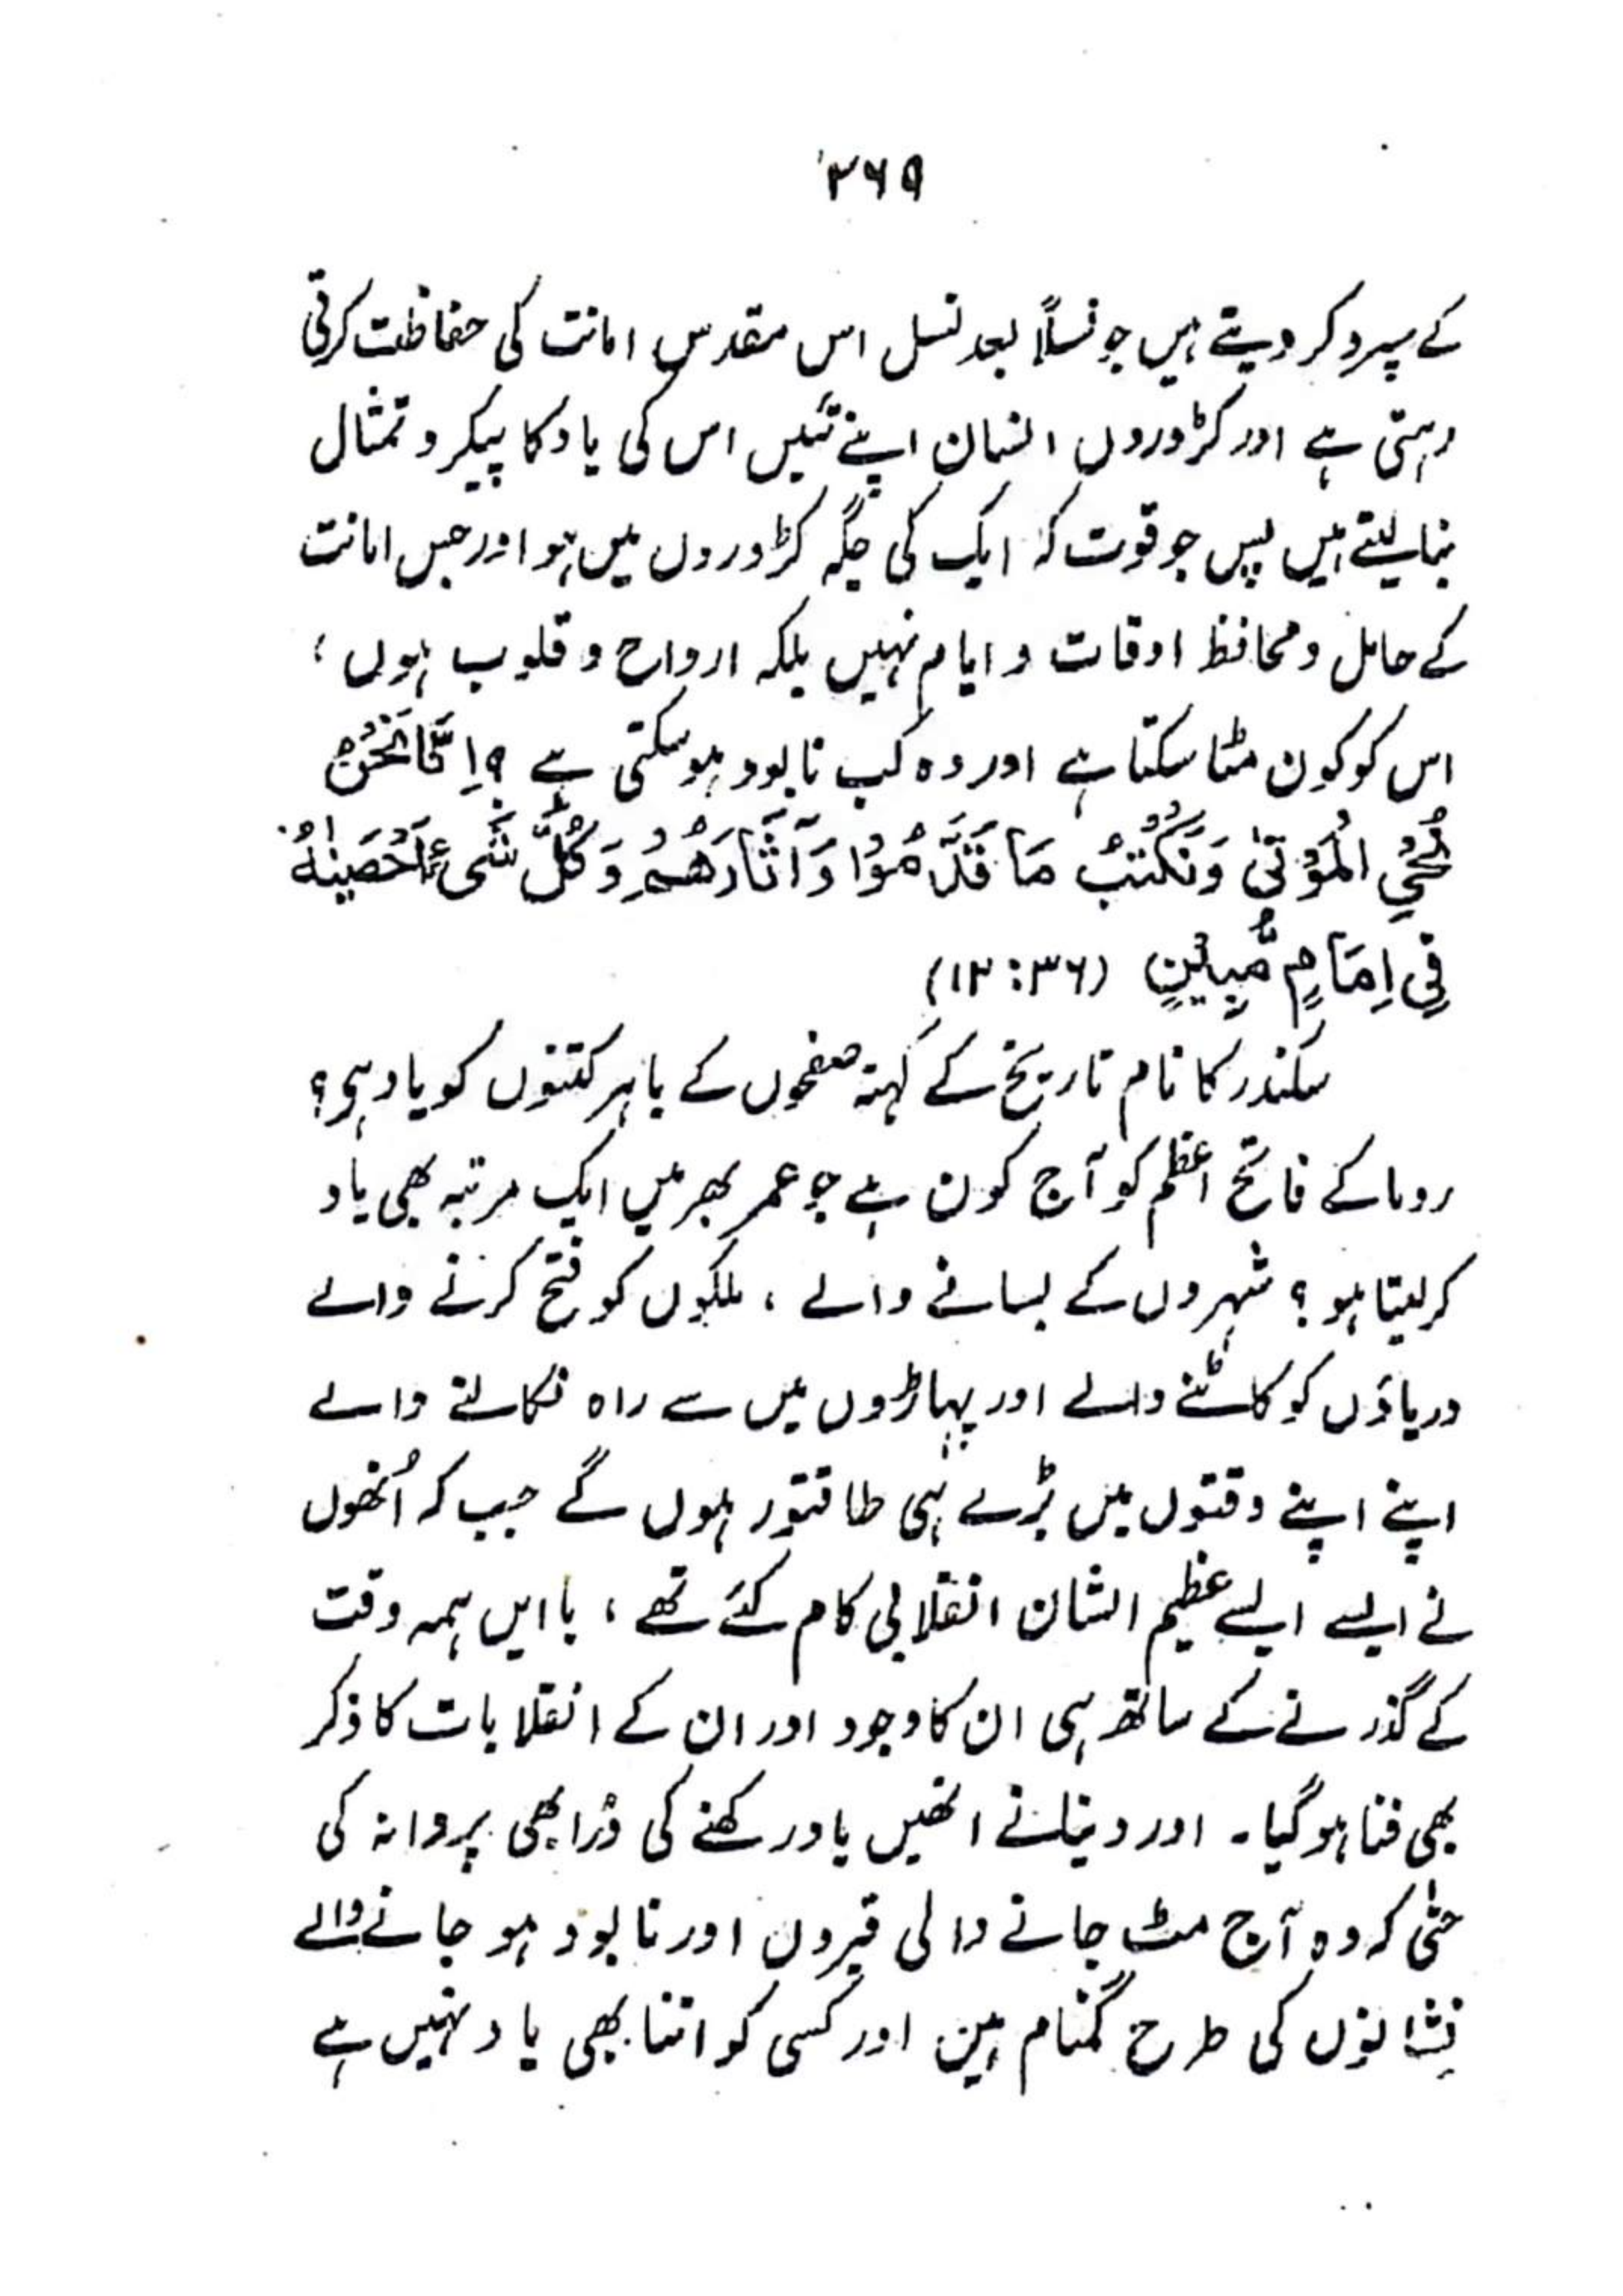 ۳۶۹
کے سپرد کر دیتے ہیں جو نسلاً بعد نسل اس مقدس امانت کی حفاظت کرتی
رہتی ہے اور کڑوروں انسان اپنے تئیں اس کی یاد کا پیکر و تمثال
بنا لیتے ہیں پس جو قوت کہ ایک کی جگہ کڑوروں میں ہو اور جس امانت
کے حامل و محافظ اوقات و ایام نہیں بلکہ ارواح و قلوب ہوں ؛
اس کو کون مٹا سکتا ہے اور وہ کب نابود ہو سکتی ہے ؟ اِنَّا نَحْنُ
نُحْيِ الْمَوْتٰى وَنَكْتُبُ مَا قَدَّمُوْا وَآثَارَهُمْ وَكُلَّ شَىْءٍ اَحْصَيْنٰهُ
فِى اِمَامٍ مُّبِيْنٍ (۱۲:۳۶)
سکندر کا نام تاریخ کے کہنہ صفحوں کے باہر کتنوں کو یاد ہی؟
روما کے فاتح اعظم کو آج کون ہے جو عمر بھر میں ایک مرتبہ بھی یاد
کر لیتا ہو ؟ شہروں کے بسانے والے ، ملکوں کو فتح کرنے والے
دریاؤں کو کاٹنے والے اور پہاڑوں میں سے راہ نکالنے والے
اپنے اپنے وقتوں میں بڑے ہی طاقتور ہوں گے جب کہ اُنھوں
نے ایسے ایسے عظیم الشان انقلابی کام کئے تھے ، با ایں ہمہ وقت
کے گذرنے کے ساتھ ہی ان کا وجود اور ان کے انقلابات کا ذکر
بھی فنا ہو گیا۔ اور دنیا نے انھیں یاد رکھنے کی ذرا بھی پروا نہ کی
حتٰی کہ وہ آج مٹ جانے والی قبروں اور نابود ہو جانے والے
نشانوں کی طرح گمنام ہیں اور کسی کو اتنا بھی یاد نہیں ہے